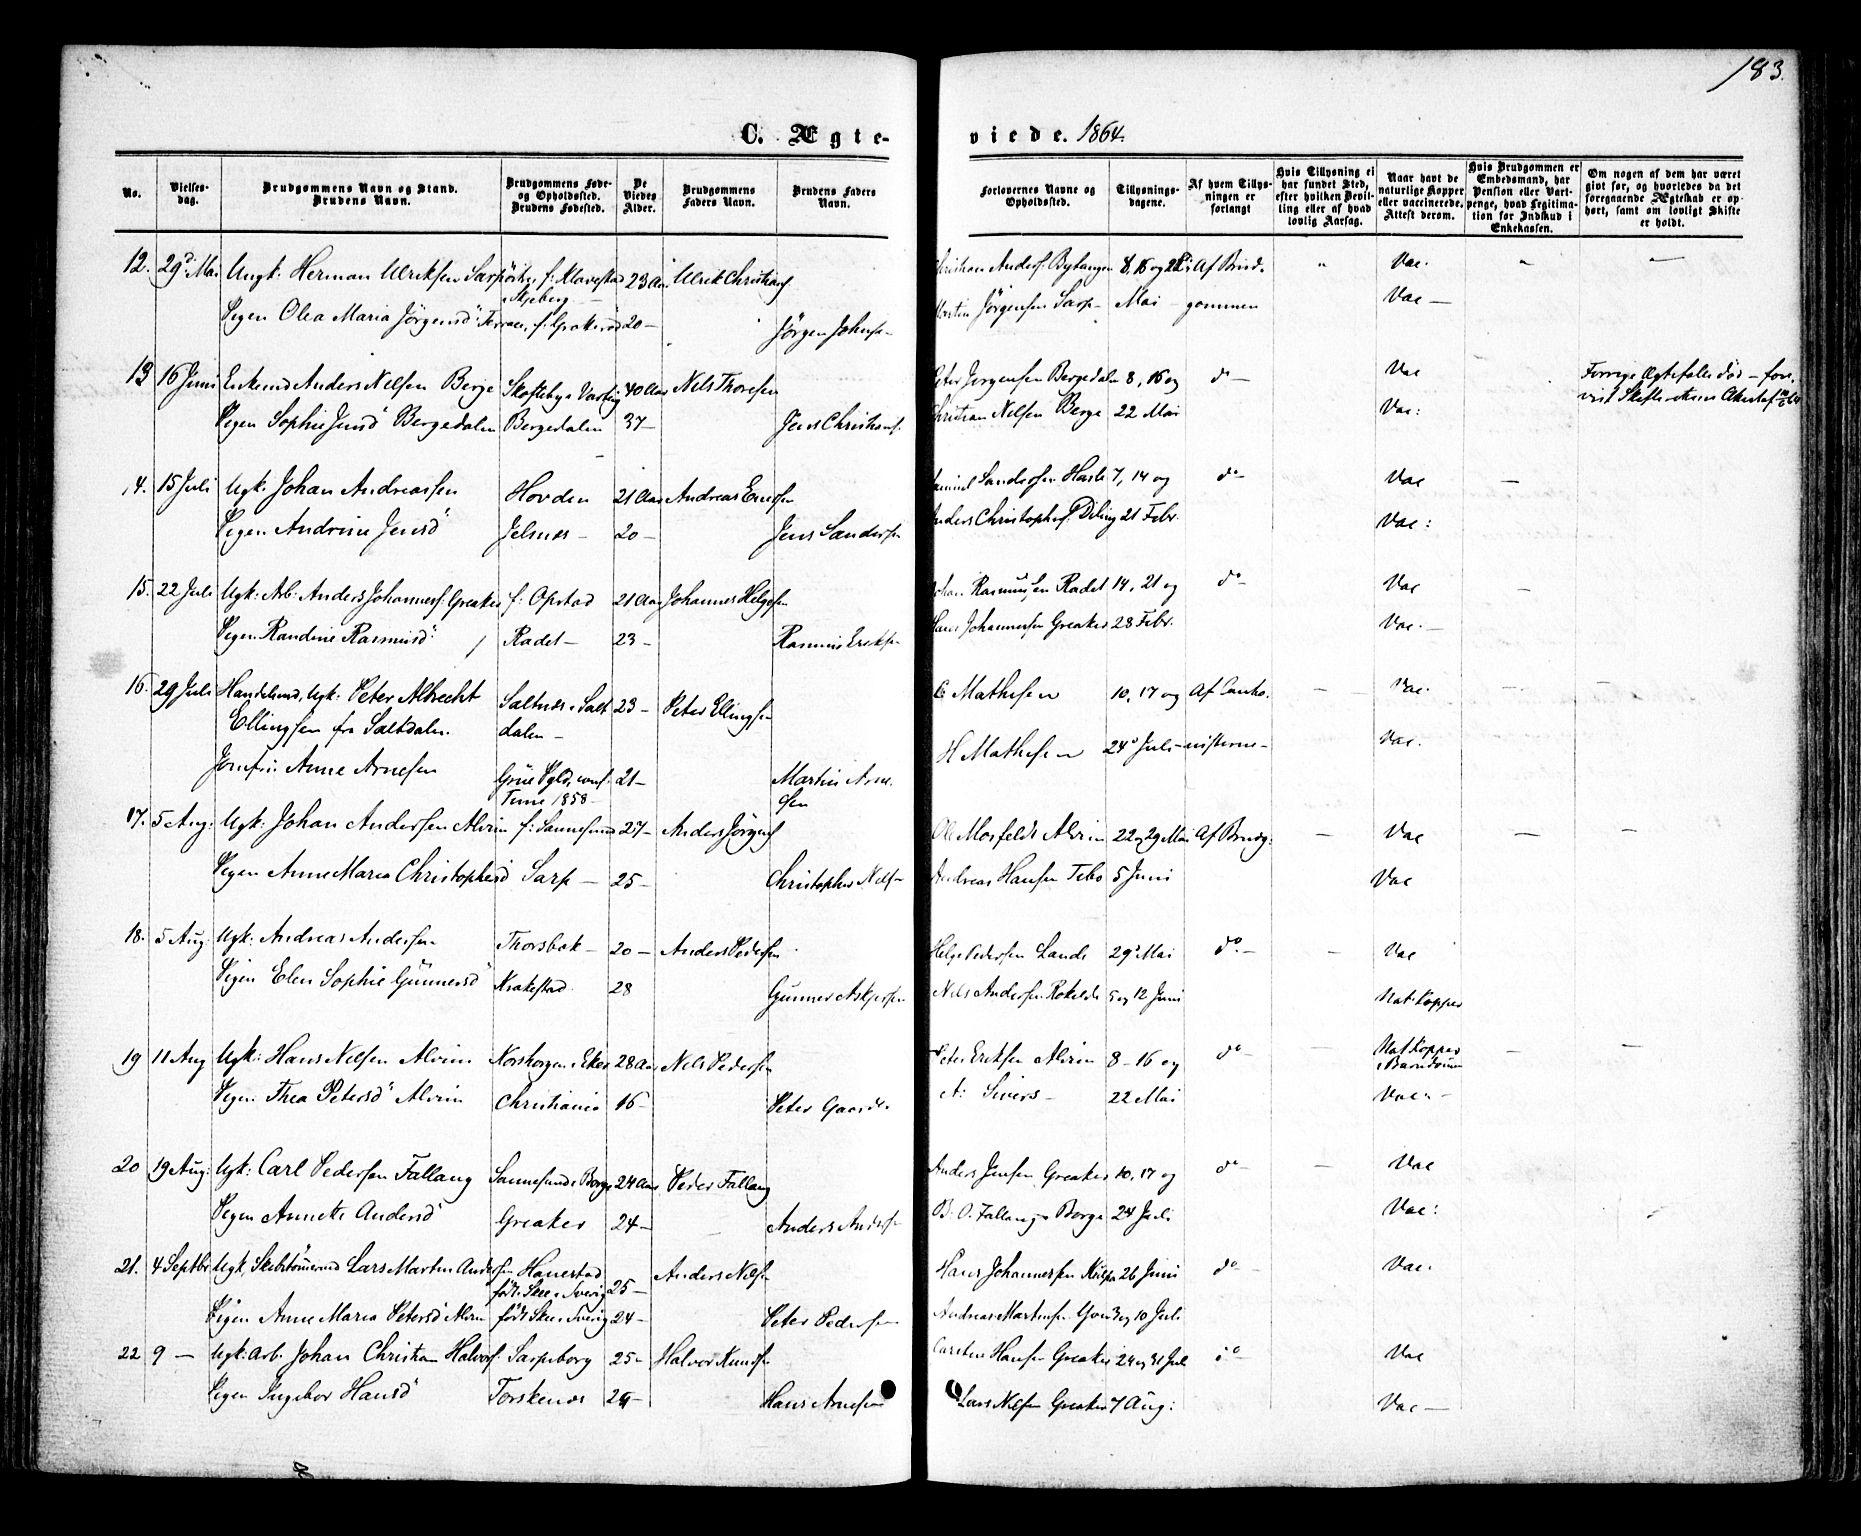 183.
C. Ægte-
viede. 1864.
No.
Vielses-
dag.
Brudgommens Navn og Stand.
Brudens Navn.
Brudgommens Føde-
og Opholdssted.
Brudens Fødested.
De
Viedes
Alder.
Brudgommens
Faders Navn.
Brudens Faders
Navn.
Forlovernes Navne og
Opholdssted.
Tillysnings-
dagene.
Af hvem Tillys-
ningen er
forlangt
Hvis Tillysning ei
har fundet Sted,
efter hvilken Bevil-
ling eller af hvad
lovlig Aarsag.
Naar havt de
naturlige Kopper
eller vaccinerede.
Attest derom.
Hvis Brudgommen er
Embedsmand, har
Pension eller Vart-
penge, hvad Legitima-
tion for Indskud i
Enkekassen.
Om nogen af dem har været
givt før, og hvorledes da det
foregaaende Ægteskab er op-
hørt, samt om lovligt Skifte
er holdt.
12. 29d. Mai Ungk: Herman Ulriksen Sarpsborg, f. Klavestad 23 Aar Ulrik Christians. Christian Anders. 8, 16 og 22 Af Brud-  Vac.
Skjeberg —
Pigen Olea Maria Jörgensd f: Greaker 20 — Jörgen Johns. Martin Jörgensen Sarp — Mai — gommen Vac —
13 16 Juni Enkemd Anders Nilsen Berge Skofteby i Varteig 40 Aar Nils Thoresen Peter Jörgensen Bergedalen 8, 16 og do — Vac Forrige Ægtefælle død —
Pigen Sophie Jensd Bergedalen Bergedalen 37 — Jens Christians. Christian Nilsen Berge 22 Mai Vac:
14. 15 Juli Ugk. Johan Andreassen Hovden 21 Aar Andreas Samuel Sandersen Hasle 7, 14 og do — Vac —
Pigen Andrine Jensd Jelsnes — 20 — Jens Sandersen Anders Christophers. Deling 21 Febr. Vac:
15. 22 Juli Ugk: Arb: Anders Johanness. Greaker f: Opstad 21 Aar Johannes Helgesen Johan Rasmussen Radet 14, 21 og do — Vac
Pigen Randine Rasmusd Radet — 23 — Rasmus Eriksen Hans Johannessen Greaker 28 Febr. Vac. —
16. 29 Juli Handelsmd, Ugk. Peter Albrecht Saltnes i Salt 23 — Peter Ellingsen C Mathesen 10, 17 og Af — Vac. — —
Ellingsen fra Saltdalen. dalen —
H Mathesen 24d Juli — Vac.
Jomfru: Anne Arnesen conf. 21 — Martin Arne-
Tune 1858 — sen
17. 5 Aug: Ugk: Johan Andersen Alvim f: Sannesund 27 — Anders Jörgens. Ole Mosfeldt Alvim 22 og 29 Mai Af Brudg: — Vac — —
Pigen Anne Maria Christophersd Sarp — 25 — Christopher Nils. Andreas Hansen Tebo 5 Juni Vac
18. 5 Aug: Ugk: Andreas Andersen Thorsbak — 20 — Anders Pedersen Helge Pedersen Lande 29d Mai do. — — Vac
Pigen Elen Sophie Gunnersd Krakestad 28 Gunner Askjersen Nils Andersen 5 og 12 Juni Nat: Kopper
19 11 Aug Ugk: Hans Nilsen Alvim 28 Aar Nils Pedersen Peter Eriksen Alvim 8 — 16 og do — — Nat Kopper — —
i Barndommen
Pigen Thea Petersd Alvim Christiania 16 — Peter A: Sivers — 22 Mai Vac —
20 19 Aug: Ugk: Carl Pedersen Fallang Sannesund i Borge 24 Aar Peder Fallang Anders Jensen Greaker 10, 17 og do — — Vac
Pigen Annette Andersd Greaker 24 — Anders Anders. B. O. Fallang i Borge 24 Juli Vac:
21. 4 Septbr Ugk, Lars Martin Andersen Hanestad 25 — Anders Nilsen Hans Johannessen 26 Juni do — Vac.
født i Skee i Sverig
Pigen Anne Maria Petersd Alvim født Skee i Sverig 24 — Peter Pedersen Andreas Martinsen 3 og 10 Juli
22 9 — Ugk: Arb. Johan Christian Halvors. Sarpsborg 25 — Halvor Knudsen Hansen Greaker 24 og 31 Juli do — Vac
Pigen Ingebor Hansd Torskenes Hans Arnesen Lars Nilsen Greaker 7 Aug: Vac —